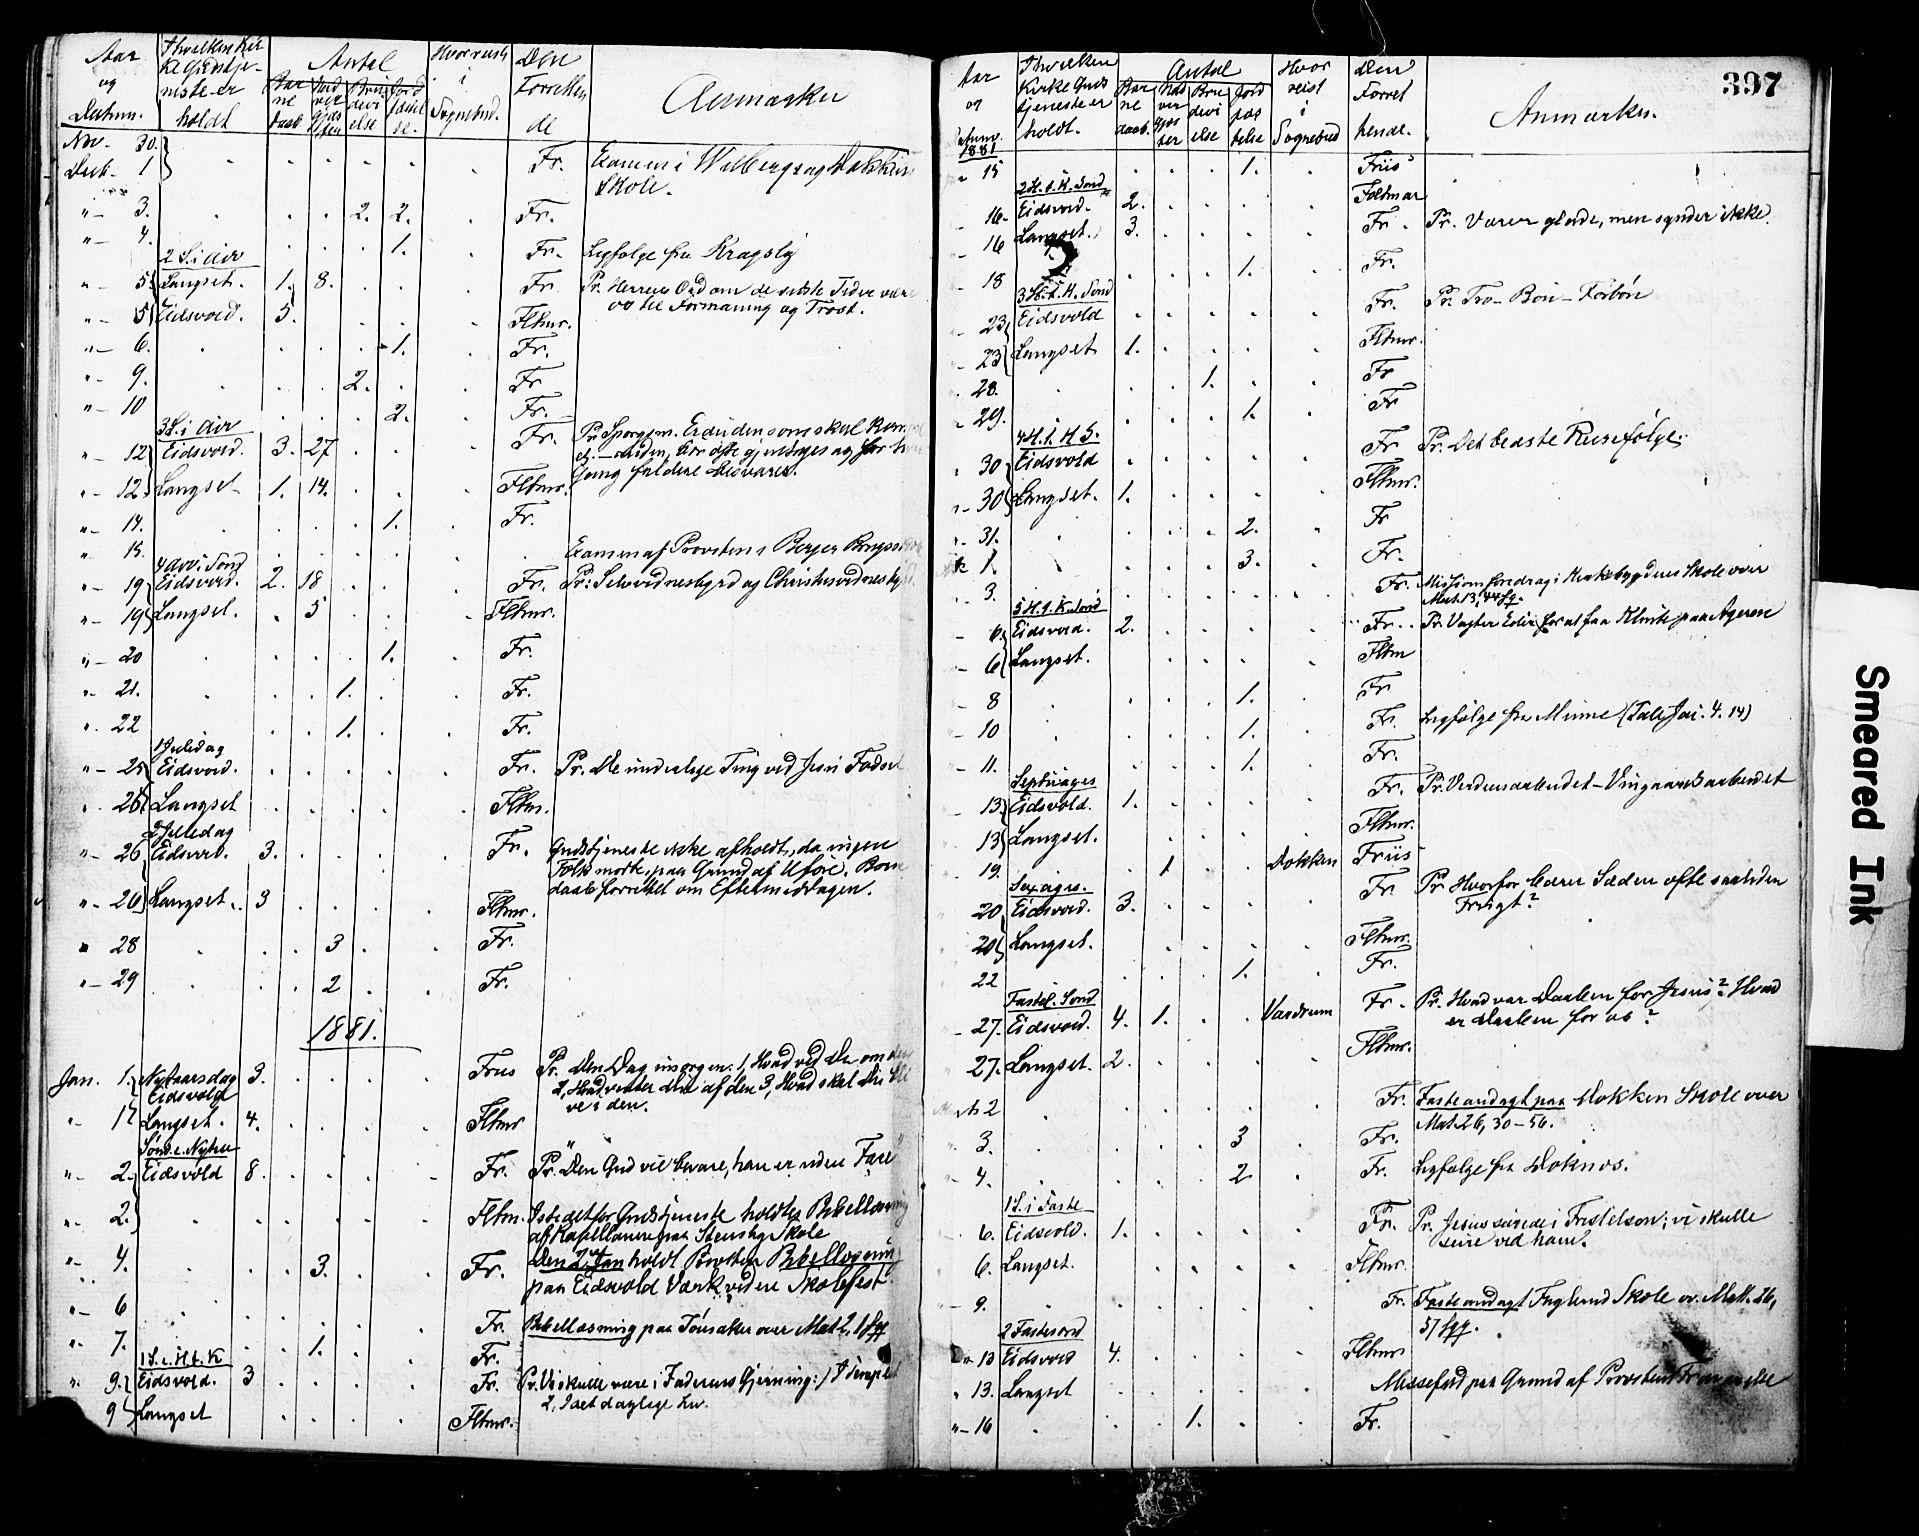 Aar og Datum.
I hvilken Kirke Gudstjeneste er holdt
Antal
Hvor reist i Sognebud.
Den Forrettende
Anmærkn
Nov. 30.
Decb. 1 Fr. Examen i Wilbergs og Dokkens
Skole.
"- 3. 2. 2. Fr.
"- 4. 1. Fr. Ligfølge fra
2 S. i Adv
"- 5 Langset. 1. 8. Fr. Pr. Herrens Ord om de sidste Tider være
os til Formaning og Trøst.
"- 5 Eidsvold. 5. Fltmr.
"- 6. 1. Fr.
"- 9. 2. Fr
"- 10 2. Fr.
3 S. i Adv
"- 12 Eidsvold. 3. 27 Fr. Pr. Spørgsm. Er du den som skal
Gang fuldere besvares.
"- 12 Langset 1. 14. Fltmr.
"- 14. 1. Fr.
"- 15. Examen af Provsten i Berger
4 Adv. Sønd
"- 19 Eidsvold. 2. 18 Fr. Pr. Selvvidnesbyrd og Christusvidnesbyrd.
"- 19 Langset. 5 Fltmr.
"- 20 1. Fr.
"- 21. 1. Fr.
"- 22 1. Fr.
1 Juledag
"- 25 Eidsvold. Fr. Pr. De underlige Ting ved Jesu Fødsel
25 Langset Fltm.
2 Juledag
"- 26 Eidsvold. 3. Fr. Gudstjeneste ikke afholdt, da ingen
Folk mødte, paa Grund af Uføre. Barne
daab forrettet om Eftermiddagen.
"- 26 Langset. 3 Fltmr.
"- 28 3 Fr.
"- 29 2 Fr.
1881.
Jan. 1. Nytaarsdag 3. Friis Pr. Den Dag imorgen: 1, Hvad ved Du om den
Eidsvold 2, Hvad venter du af den 3, Hvad skal Du bli
ve i den.
"- 1 Langset. 4. Fltmr
Sønd. e. Nytaar
"- 2. Eidsvold 8. Fr. Pr. "Den Gud vil bevare, han er uden Fare"
"- 2. Fltm. Istedetfor Gudstjeneste holdtes Bibellæsning
af Kapellanen paa Stensby Skole
"- 4. 3. Fr. Den 2den Jan holdt Provsten Bibellæsning
paa Eidsvold Værk ved en Skolefest
"- 6 Fr. Bibellæsning paa Tønsaker over Mat 2, 1 fgg
"- 7. 1. Fr.
1 S. e. H. t. K
"- 9. Eidsvold. 3 Fr. Pr. Vi skulle være i Faderens Gjerning: 1, I Templet
2, I det daglige Liv.
9 Langset Fltmr.
397
Aar og Datum.
I hvilken Kirke Gudstjeneste er holdt.
Antal
Hvor reist i Sognebud
Den Forrettende.
Anmærkn.
1881
"- 15 1. Friis
2 H. t. K. Sønd
16. Eidsvold. 2. Foltmar
16 Langset. 3. Fr. Pr. Værer glade, men synder ikke.
18 1. Fr.
3 H. t. K. Sønd
23 Eidsvold Fr. Pr. Tro - Bøn - Forbøn
23 Langset 1. Fltmr.
28. 1. Fr
29. 1. Fr
4 H. t. K S.
30 Eidsvold Fr Pr. Det bedste Reisefølge.
30 Langset. 1. Fltmr.
31. 2. Fr
1. 3. Fr.
3. Fr. Missionsforedrag i Kirkebygdens Skole over
Mat. 13, 44 fg.
5 H. t. K. Sønd
6. Eidsvold. 2. Fr. Pr. Vogter Eder for at faa Klinte paa Ageren
6 Langset. Fltm
8 1. Fr
10 1. Fr. Ligfølge fra Minne (Tale Jac. 4. 14)
11. 1. Fr.
Septuages
13 Eidsvold. 1. Fr. Pr. Verdensarbeidet - Viingaardsarbeidet
13 Langset. Fltmr.
19. 1 Dokken Friis
Sexages.
20 Eidsvold. 3. Fr. Pr. Hvorfor bærer Sæden ofte saa liden
Frugt?
20 Langset. Fltmr.
22 1. Fr.
Fastel. Sønd
27. Eidsvold. 4. 1. Vandrum Fr. Pr. Hvad var Daaben for Jesus? Hvad
er Daaben for os?
27. Langset. 2. Fltmr.
2 Fr. Fasteandagt paa Dokken Skole over
Mat 26, 30-56.
3. 3 Fr.
4. 2 Fr. Ligfølge fra Doknos.
1 S. i Faste
6. Eidsvold. 1. Fr. Pr. Jesus seirede i Fristelsen; vi skulle
seire ved ham.
6. Langset. Fltmr.
9. Fr. Fasteandagt Skole ov. Matt. 26,
57 fgg.
2 Fastesønd
13 Eidsvold 4. Fltmr
13. Langset Messefald paa Grund af Provstens Fraværelse
16 1. Fr.
Smeared Ink